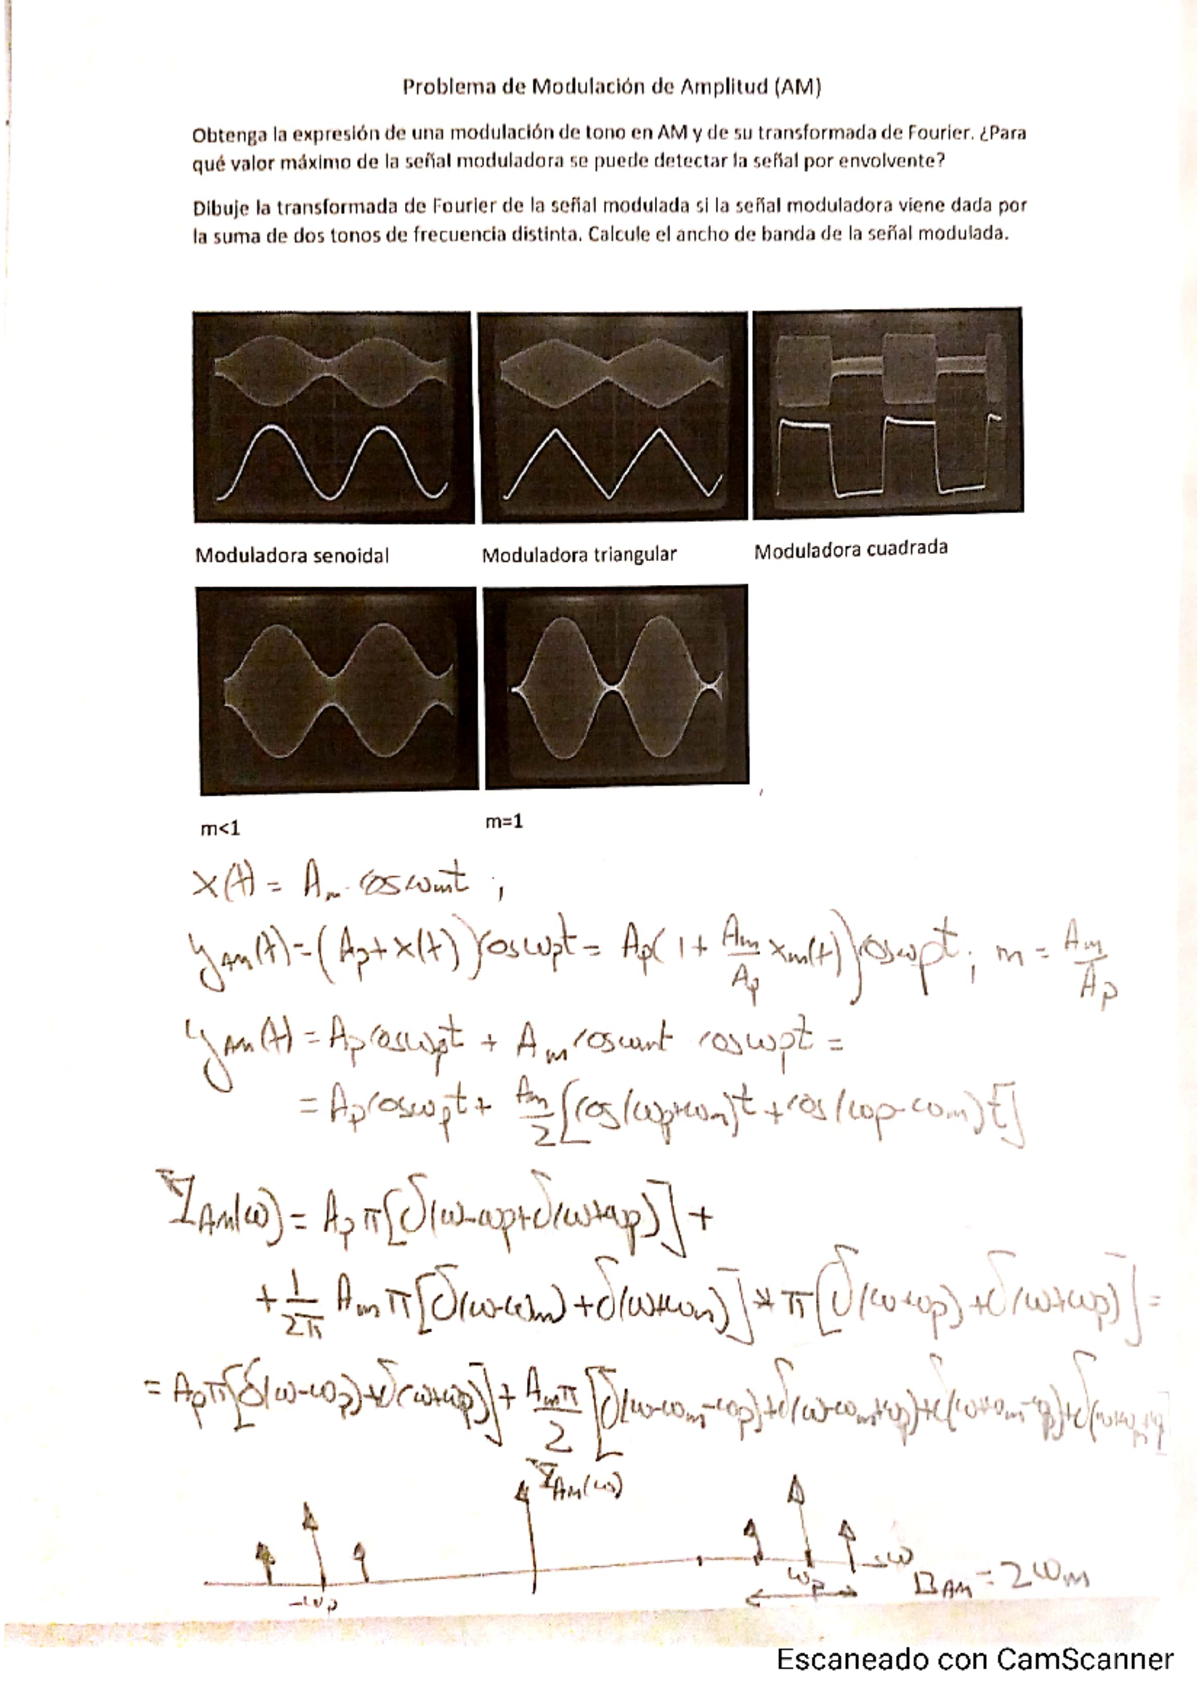 Problema de Modulación de Amplitud (AM)
Obtenga la expresión de una modulación de tono en AM y de su transformada de Fourier. ¿Para
qué valor máximo de la señal moduladora se puede detectar la señal por envolvente?
Dibuje la transformada de Fourier de la señal modulada si la señal moduladora viene dada por
la suma de dos tonos de frecuencia distinta. Calcule el ancho de banda de la señal modulada.
Moduladora senoidal Moduladora triangular Moduladora cuadrada
m<1 m=1
x(t) = Am · cos ωmt ;
yAM(t) = (Ap + x(t)) cos ωpt = Ap(1 + Am/Ap xm(t)) cos ωpt ; m = Am/Ap
yAM(t) = Ap cos ωpt + Am cos ωmt cos ωpt =
= Ap cos ωpt + Am/2 [cos(ωp+ωm)t + cos(ωp-ωm)t]
YAM(ω) = Ap π[δ(ω-ωp)+δ(ω+ωp)] +
+ 1/2π Am π[δ(ω-ωm)+δ(ω+ωm)] * π[δ(ω+ωp)+δ(ω+ωp)] =
= Ap π[δ(ω-ωp)+δ(ω+ωp)] + Am π/2 [δ(ω-ωm-ωp)+δ(ω-ωm+ωp)+δ(ω+ωm-ωp)+δ(ω+ωm+ωp)]
YAM(ω)
-ωp ωp ω BAM = 2ωm
Escaneado con CamScanner